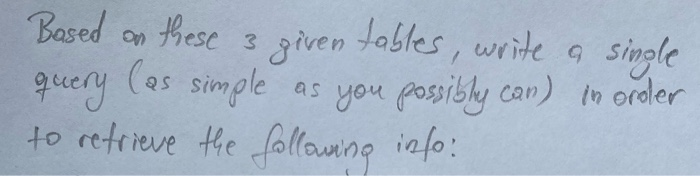 Based on these 3 given tables, write a single
query (as simple as you possibly can) in order
to retrieve the following info: